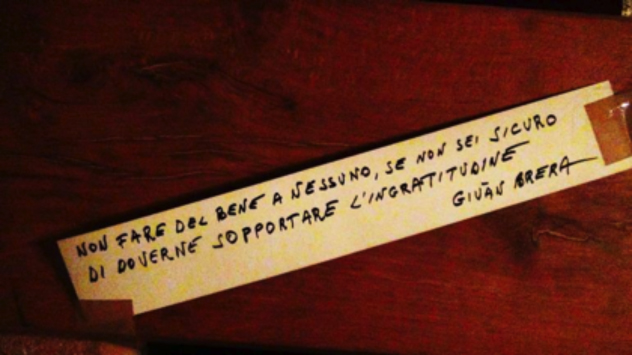 NON FARE DEL BENE A NESSUNO, SE NON SEI SICURO
DI DOVERNE SOPPORTARE L'INGRATITUDINE
GIUÀN BRERA